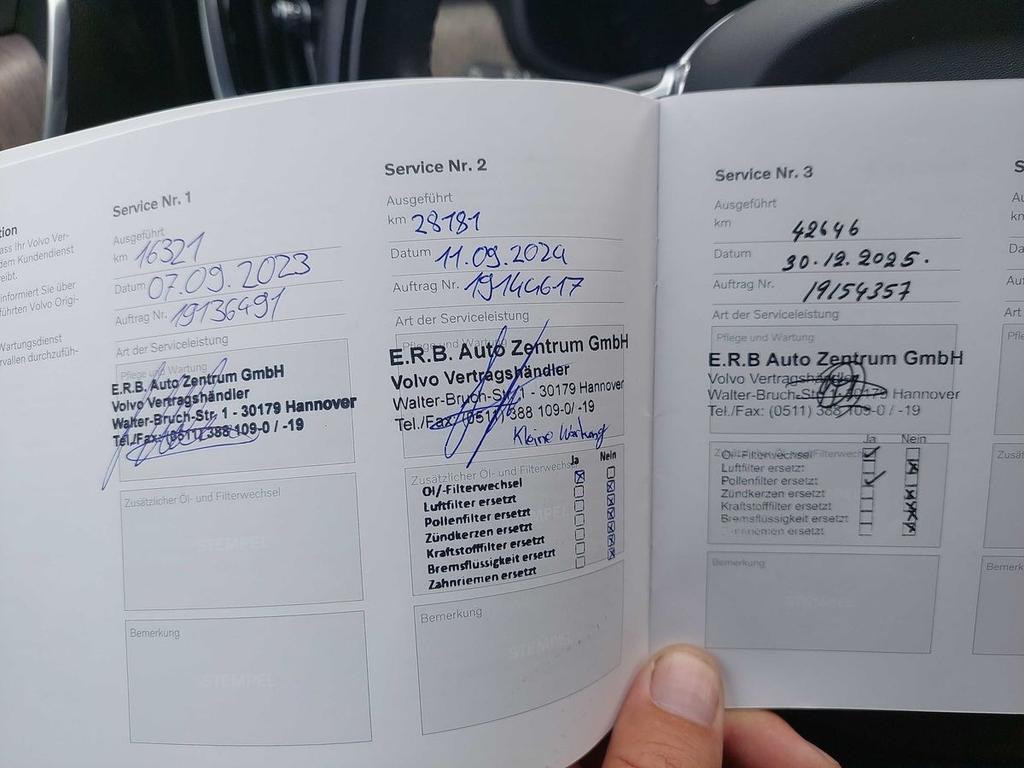 tion
ass Ihr Volvo Ver-
dem Kundendienst
reibt.
informiert Sie über
führten Volvo Origi-
Wartungsdienst
rvallen durchzufüh-
Service Nr. 1
Ausgeführt
km 16321
Datum 07.09.2023
Auftrag Nr. 19136491
Art der Serviceleistung
Pflege und Wartung
E.R.B. Auto Zentrum GmbH
Volvo Vertragshändler
Walter-Bruch-Str. 1 - 30179 Hannover
Tel./Fax: (0511) 388 109-0 / -19
Zusätzlicher Öl- und Filterwechsel
STEMPEL
Bemerkung
STEMPEL
Service Nr. 2
Ausgeführt
km 28181
Datum 11.09.2024
Auftrag Nr. 19144617
Art der Serviceleistung
Pflege und Wartung
E.R.B. Auto Zentrum GmbH
Volvo Vertragshändler
Walter-Bruch-Str. 1 - 30179 Hannover
Tel./Fax: (0511) 388 109-0/ -19
Kleine Wartung
Zusätzlicher Öl- und Filterwechsel
Ja Nein
Öl/-Filterwechsel
Luftfilter ersetzt
Pollenfilter ersetzt
Zündkerzen ersetzt
Kraftstofffilter ersetzt
Bremsflüssigkeit ersetzt
Zahnriemen ersetzt
Bemerkung
STEMPEL
Service Nr. 3
Ausgeführt
km 42646
Datum 30.12.2025.
Auftrag Nr. 19154357
Art der Serviceleistung
Pflege und Wartung
E.R.B Auto Zentrum GmbH
Volvo Vertragshändler
Walter-Bruch-Str. 1 - 30179 Hannover
Tel./Fax: (0511) 388 109-0 / -19
Ja Nein
Zusätzlicher Öl- und Filterwechsel
Öl-Filterwechsel
Luftfilter ersetzt
Pollenfilter ersetzt
Zündkerzen ersetzt
Kraftstofffilter ersetzt
Bremsflüssigkeit ersetzt
Bemerkung
S
Au
km
Da
Au
Art
Pfle
Zusät
Bemerk